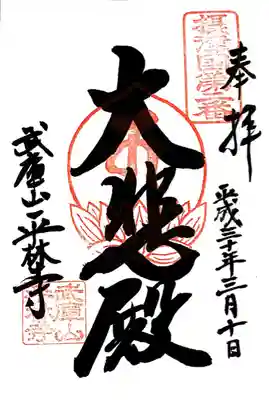 奉拝
平成三十年三月十日
摂津国第二番
大悲殿
武庫山平林寺
武庫山
平林寺